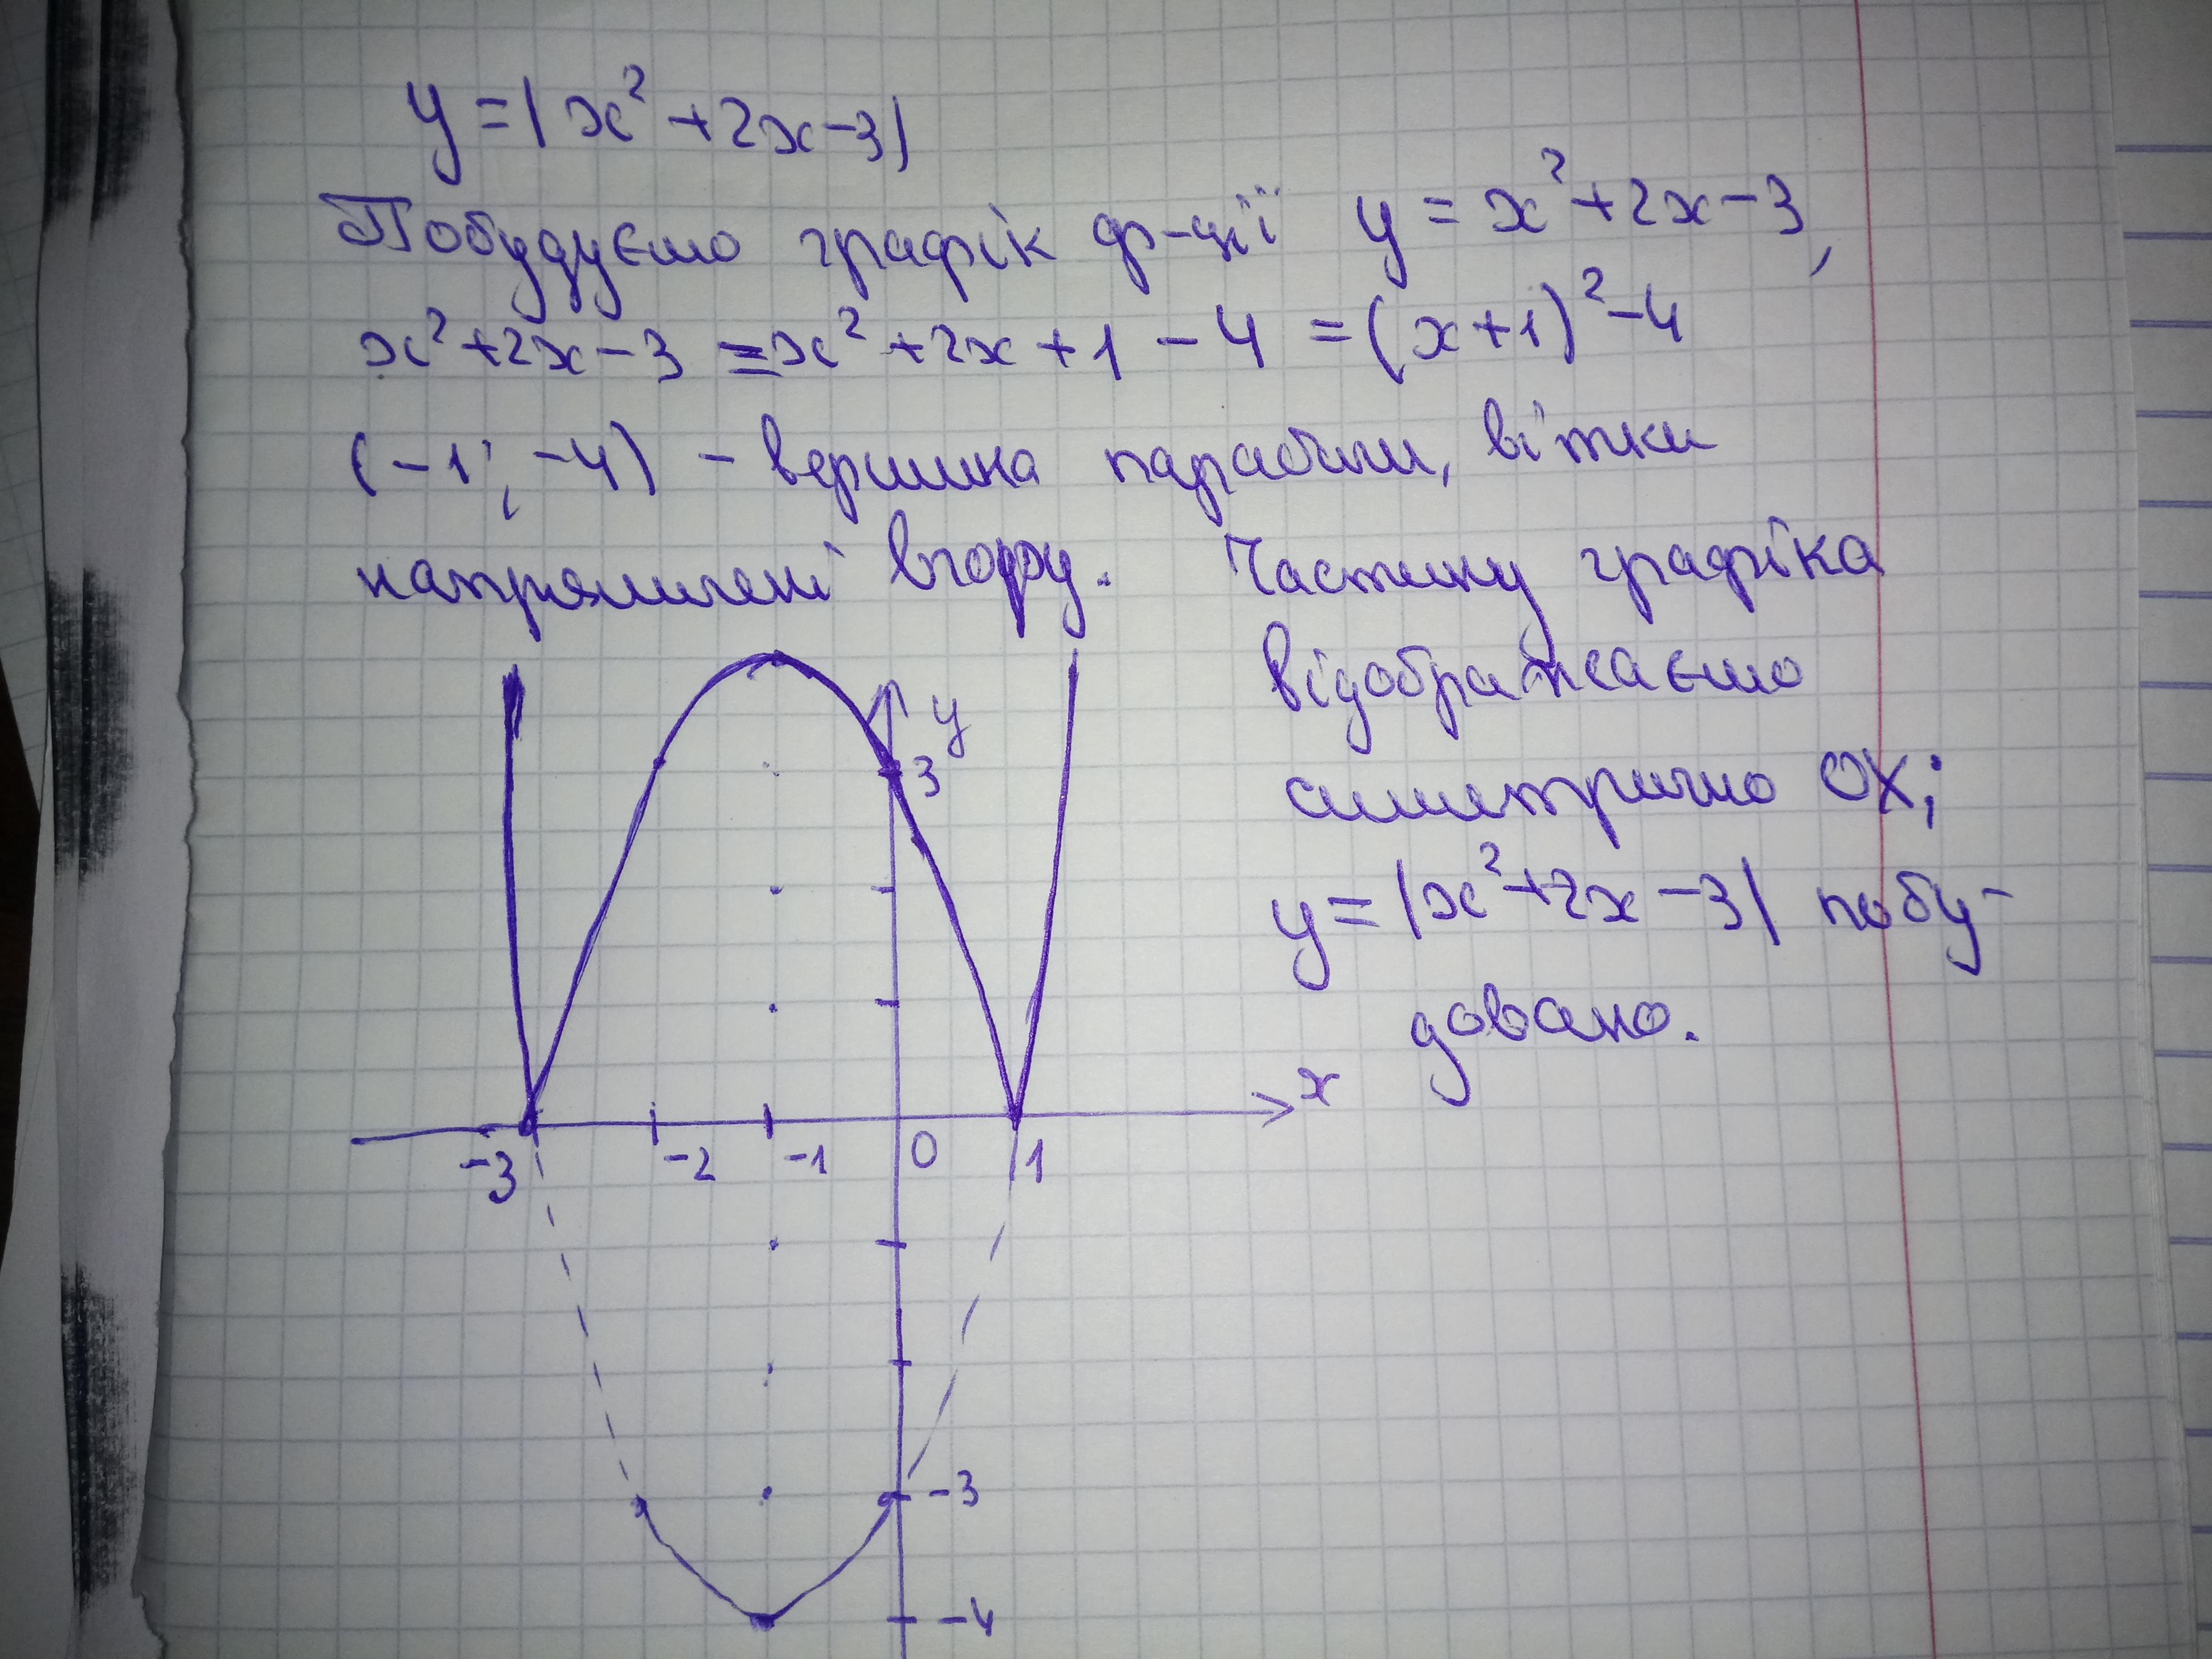 y = |x² + 2x - 3|
Побудуємо графік ф-ції y = x² + 2x - 3,
x² + 2x - 3 = x² + 2x + 1 - 4 = (x + 1)² - 4
(-1; -4) - вершина параболи, вітки
напрямлені вгору. Частину графіка
відображаємо
симетрично OX;
y = |x² + 2x - 3| побу-
довано.
y
3
x
-3 -2 -1 0 1
-3
-4